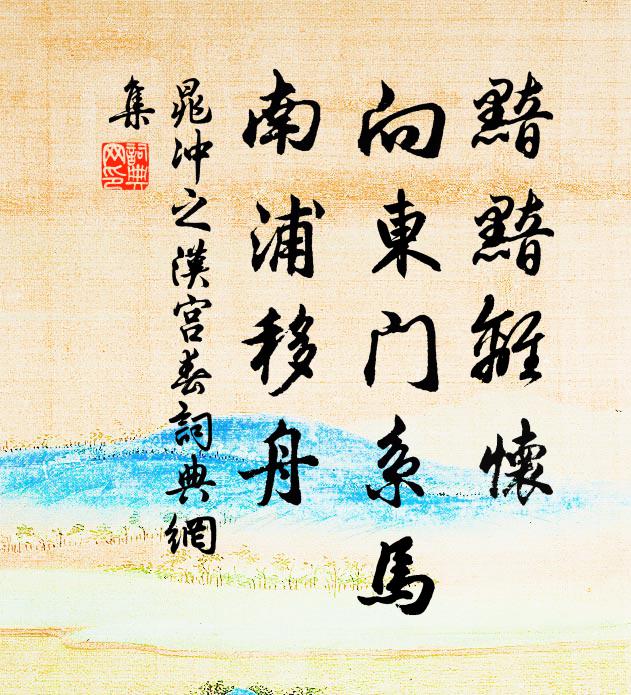 黯黯離懷
向東門系馬
南浦移舟
晁沖之漢宮春詞典網
集
詞典網印